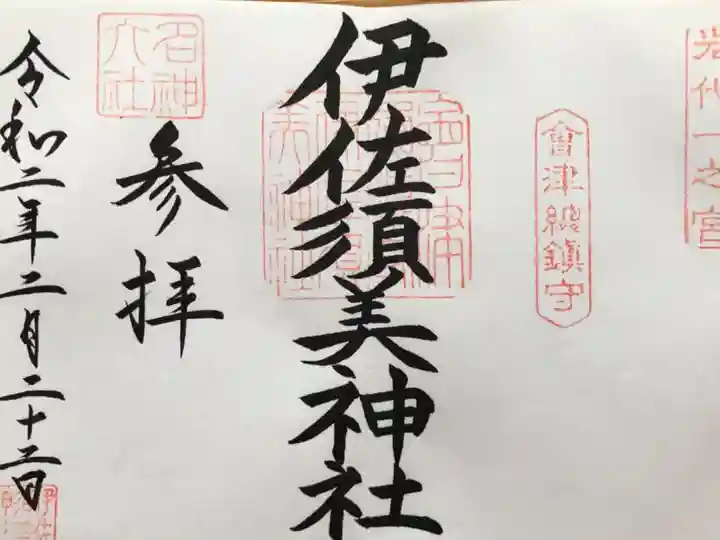 岩代一之宮
會津總鎮守
伊佐須美神社
参拝
名神大社
令和二年二月二十三日